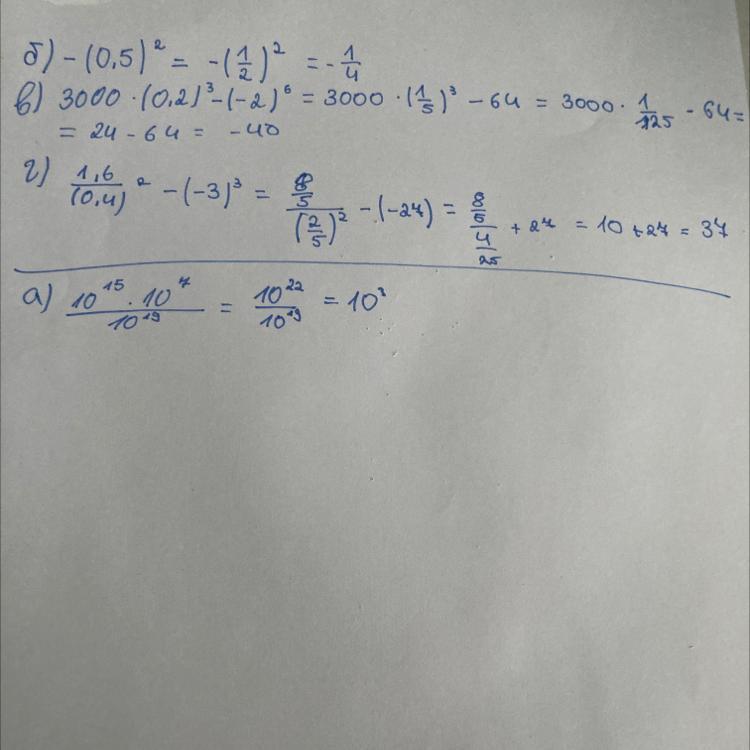 б) -(0,5)² = -(1/2)² = -1/4
в) 3000·(0,2)³-(-2)⁶ = 3000·(1/5)³ - 64 = 3000·1/125 - 64 =
= 24 - 64 = -40
г) 1,6/(0,4)² - (-3)³ = (8/5)/(2/5)² - (-27) = (8/5)/(4/25) + 27 = 10 + 27 = 37
а) (10¹⁵·10⁷)/10¹⁹ = 10²²/10¹⁹ = 10³